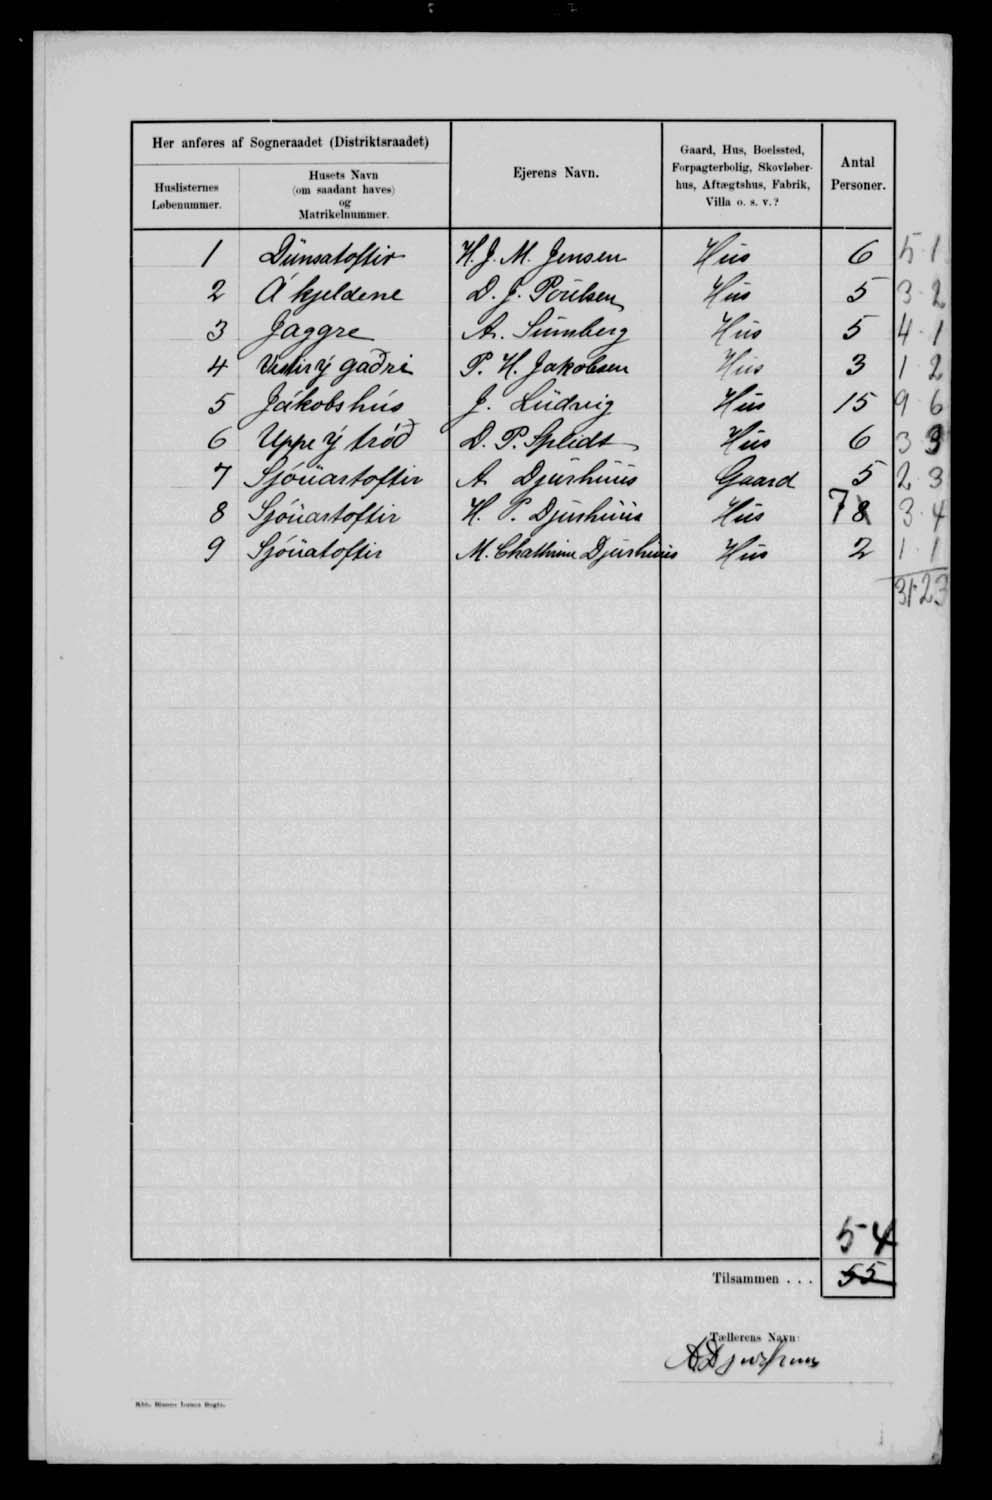 Her anføres af Sogneraadet (Distriktsraadet)
Huslisternes
Løbenummer.
Husets Navn
(om saadant haves)
og
Matrikelnummer.
Ejerens Navn.
Gaard, Hus, Boelssted,
Forpagterbolig, Skovløber-
hus, Aftægtshus, Fabrik,
Villa o. s. v.?
Antal
Personer.
1 Dúnsatoftir H. J. M. Jensen Hus 6 5 · 1
2 Á kjeldene D. J. Poulsen Hus 5 3 · 2
3 Jaggre A. Sumberg Hus 5 4 · 1
4 Vestir ý gaðri P. H. Jakobsen Hus 3 1 · 2
5 Jákobshús J. Ludvig Hus 15 9 · 6
6 Uppe ý tróð D. P. Splidt Hus 6 3 3
7 Sjóuartoftir A. Djurhuus Gaard 5 2 · 3
8 Sjóuartoftir H. P. Djurhuus Hus 7 8 3 · 4
9 Sjóuatoftir M. Chathrine Djurhuus Hus 2 1 · 1
31 · 23
54
Tilsammen . . . 55
Tællerens Navn:
A Djurhuus
Kbh. Bianco Lunos Bogtr.